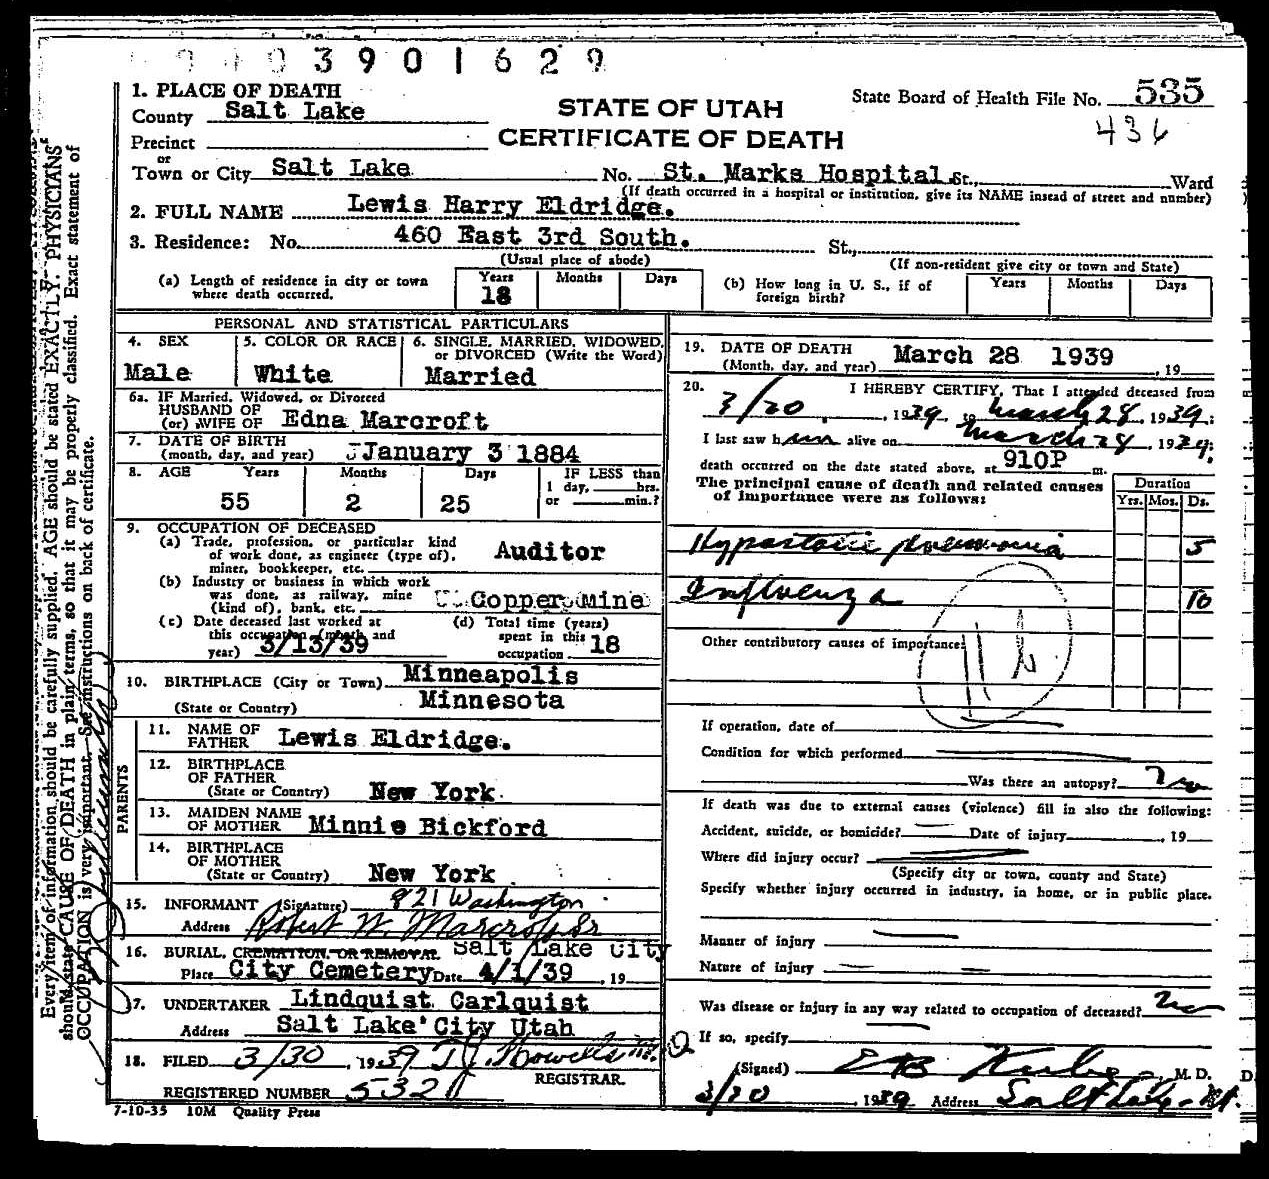 3901629
1. PLACE OF DEATH
County Salt Lake
STATE OF UTAH
State Board of Health File No. 535
CERTIFICATE OF DEATH
436
Precinct
or
Town or City Salt Lake No. St. Marks Hospital St., Ward
(If death occurred in a hospital or institution, give its NAME insead of street and number)
2. FULL NAME Lewis Harry Eldridge.
3. Residence: No. 460 East 3rd South. St.,
(Usual place of abode) (If non-resident give city or town and State)
(a) Length of residence in city or town where death occurred. Years 18 Months Days
(b) How long in U. S., if of foreign birth? Years Months Days
PERSONAL AND STATISTICAL PARTICULARS
4. SEX Male
5. COLOR OR RACE White
6. SINGLE, MARRIED, WIDOWED, or DIVORCED (Write the Word) Married
6a. IF Married, Widowed, or Divorced
HUSBAND OF
(or) WIFE OF Edna Marcroft
7. DATE OF BIRTH
(month, day, and year) January 3 1884
8. AGE Years Months Days IF LESS than
1 day, hrs.
55 2 25 or min.?
9. OCCUPATION OF DECEASED
(a) Trade, profession, or particular kind
of work done, as engineer (type of), Auditor
miner, bookkeeper, etc.
(b) Industry or business in which work
was done, as railway, mine
(kind of), bank, etc. Copper Mine
(c) Date deceased last worked at
this occupation (month and
year) 3/13/39
(d) Total time (years)
spent in this
occupation. 18
10. BIRTHPLACE (City or Town) Minneapolis
(State or Country) Minnesota
PARENTS
11. NAME OF
FATHER Lewis Eldridge.
12. BIRTHPLACE
OF FATHER
(State or Country) New York.
13. MAIDEN NAME
OF MOTHER Minnie Bickford
14. BIRTHPLACE
OF MOTHER
(State or Country) New York
15. INFORMANT (Signature) 821 Washington
Address Robert W. Marcroft Sr
16. BURIAL, CREMATION, OR REMOVAL Salt Lake City
Place City Cemetery Date 4/1/39, 19
17. UNDERTAKER Lindquist Carlquist
Address Salt Lake City Utah
18. FILED 3/30, 1939 T. J. Howells M.D
REGISTRAR.
REGISTERED NUMBER 532
7-10-35 10M Quality Press
19. DATE OF DEATH March 28 1939
(Month, day, and year) , 19
20. I HEREBY CERTIFY, That I attended deceased from
3/20, 1939, to March 28, 1939;
I last saw him alive on March 28, 1939;
death occurred on the date stated above, at 910P m.
The principal cause of death and related causes
of importance were as follows:
Duration
Yrs. Mos. Ds.
Hypostatic pneumonia 5
Influenza 10
Other contributory causes of importance:
If operation, date of
Condition for which performed
Was there an autopsy? no
If death was due to external causes (violence) fill in also the following:
Accident, suicide, or homicide? Date of injury , 19
Where did injury occur?
(Specify city or town, county and State)
Specify whether injury occurred in industry, in home, or in public place.
Manner of injury
Nature of injury
Was disease or injury in any way related to occupation of deceased? no
If so, specify
(Signed) M. D.
3/30, 1939 Address Salt Lake - Ut.
Every item of information should be carefully supplied. AGE should be stated EXACTLY. PHYSICIANS
should state CAUSE OF DEATH in plain terms, so that it may be properly classified. Exact statement of
OCCUPATION is very important. See instructions on back of certificate.